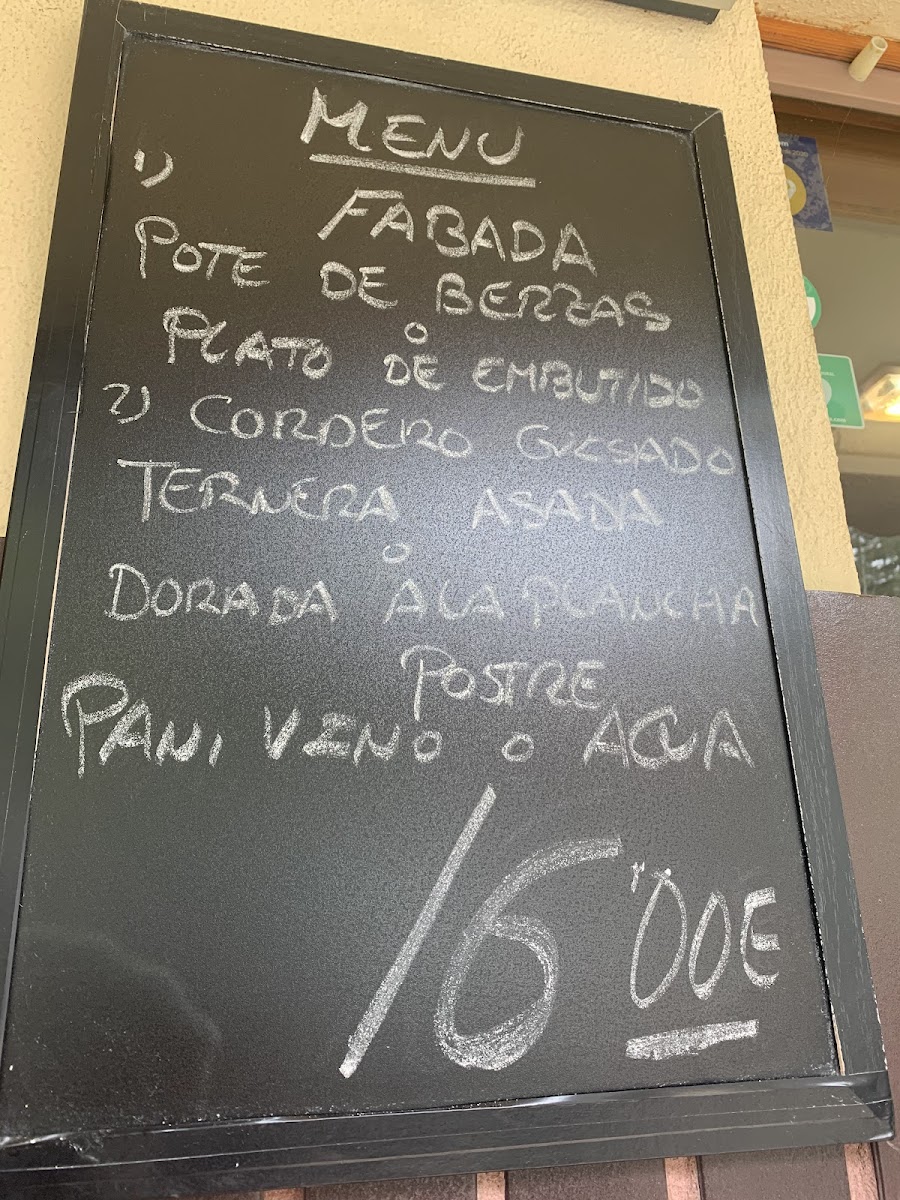 MENU
1)
FABADA
POTE DE BERZAS
O
PLATO DE EMBUTIDO
2) CORDERO GUISADO
TERNERA ASADA
O
DORADA A LA PLANCHA
POSTRE
PAN, VINO O AGUA
16'00E